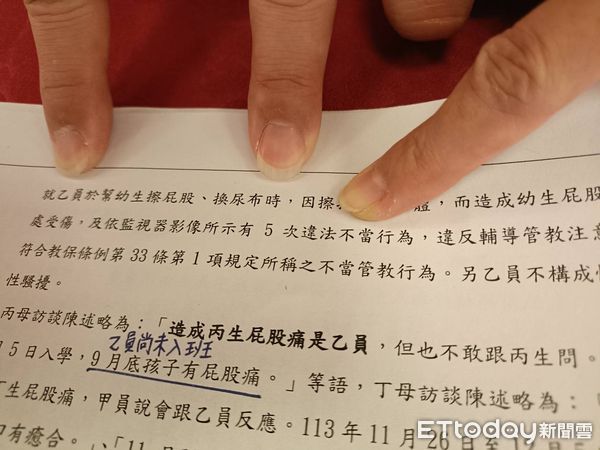 就乙員於幫幼生擦屁股、換尿布時，因擦體，而造成幼生屁股
處受傷，及依監視器影像所示有 5 次違法不當行為，違反輔導管教注意
符合教保條例第 33 條第 1 項規定所稱之不當管教行為。另乙員不構成
性騷擾。
丙母訪談陳述略為：「造成丙生屁股痛是乙員，但也不敢跟丙生問。
乙員尚未入班
月 5 日入學，9 月底孩子有屁股痛。」等語，丁母訪談陳述略為：「
生屁股痛，甲員說會跟乙員反應。113 年 11 月 26 日至 12 月 5
有癒合。」、「11 月
ETtoday新聞雲